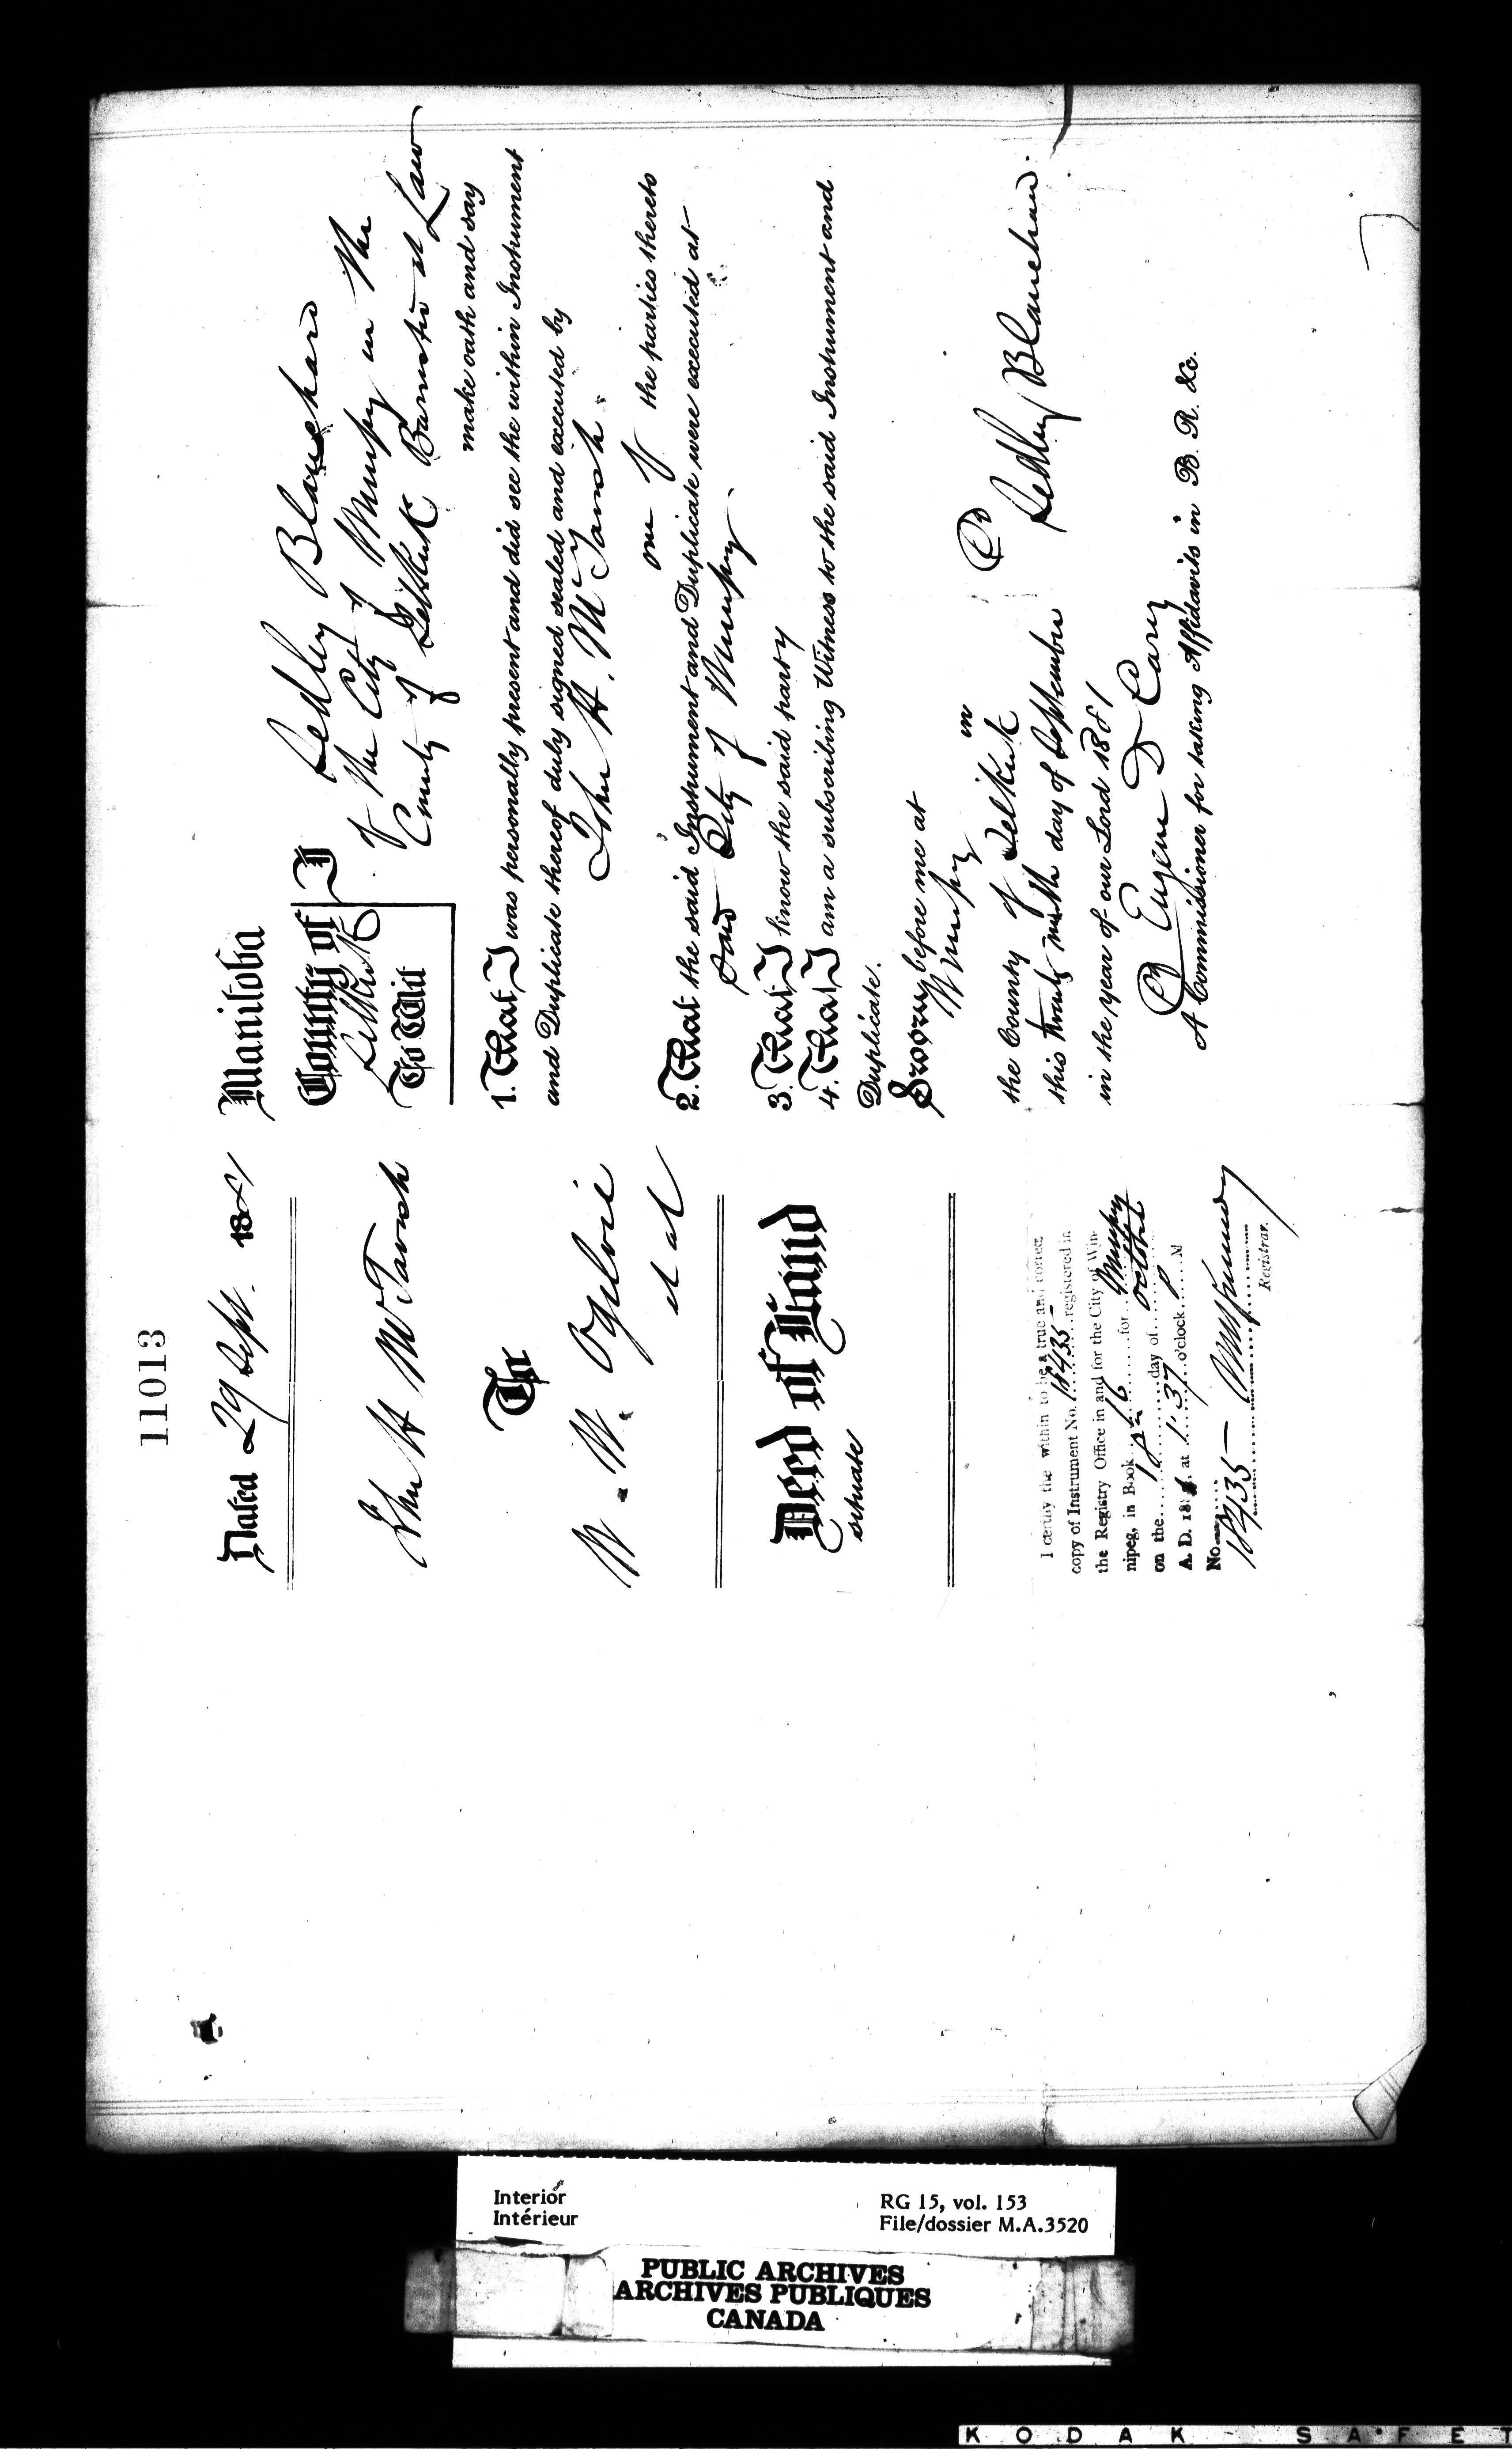 11013
Dated 29 Sept. 1881
John H McTavish
To
W. W. Ogilvie
et al
Deed of Land
situate
I certify the within to be a true and correct
copy of Instrument No. 18435 registered in
the Registry Office in and for the City of Win-
nipeg, in Book 16 for Winnipeg
on the 1st day of October
A. D. 1881, at 1.37 o'clock P M
No. 18435
Registrar.
Manitoba
County of
Selkirk
To Wit
I Sedley Blanchard
of the City of Winnipeg in the
County of Selkirk Barrister at Law
make oath and say
1. That I was personally present and did see the within Instrument
and Duplicate thereof duly signed sealed and executed by
John H. McTavish.
one of the parties thereto
2. That the said Instrument and Duplicate were executed at
said City of Winnipeg.
3. That I know the said party
4. That I am a subscribing Witness to the said Instrument and
Duplicate.
Sworn before me at
Winnipeg in
the County of Selkirk
this twenty ninth day of September
in the year of our Lord 1881
Sedley Blanchard.
Eugene D Carey
A Commissioner for taking Affidavits in B. R. &c.
Interior
Intérieur
RG 15, vol. 153
File/dossier M.A.3520
PUBLIC ARCHIVES
ARCHIVES PUBLIQUES
CANADA
KODAK SAFET